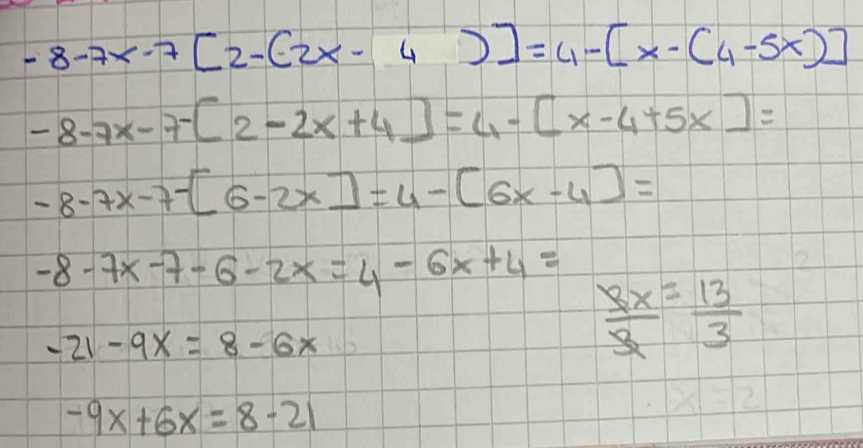 -8-7x-7[2-(2x-4)]=4-[x-(4-5x)]
-8-7x-7-[2-2x+4]=4-[x-4+5x]=
-8-7x-7-[6-2x]=4-[6x-4]=
-8-7x-7-6-2x=4-6x+4=
-21-9x=8-6x
-9x+6x=8-21
3x/3=13/3